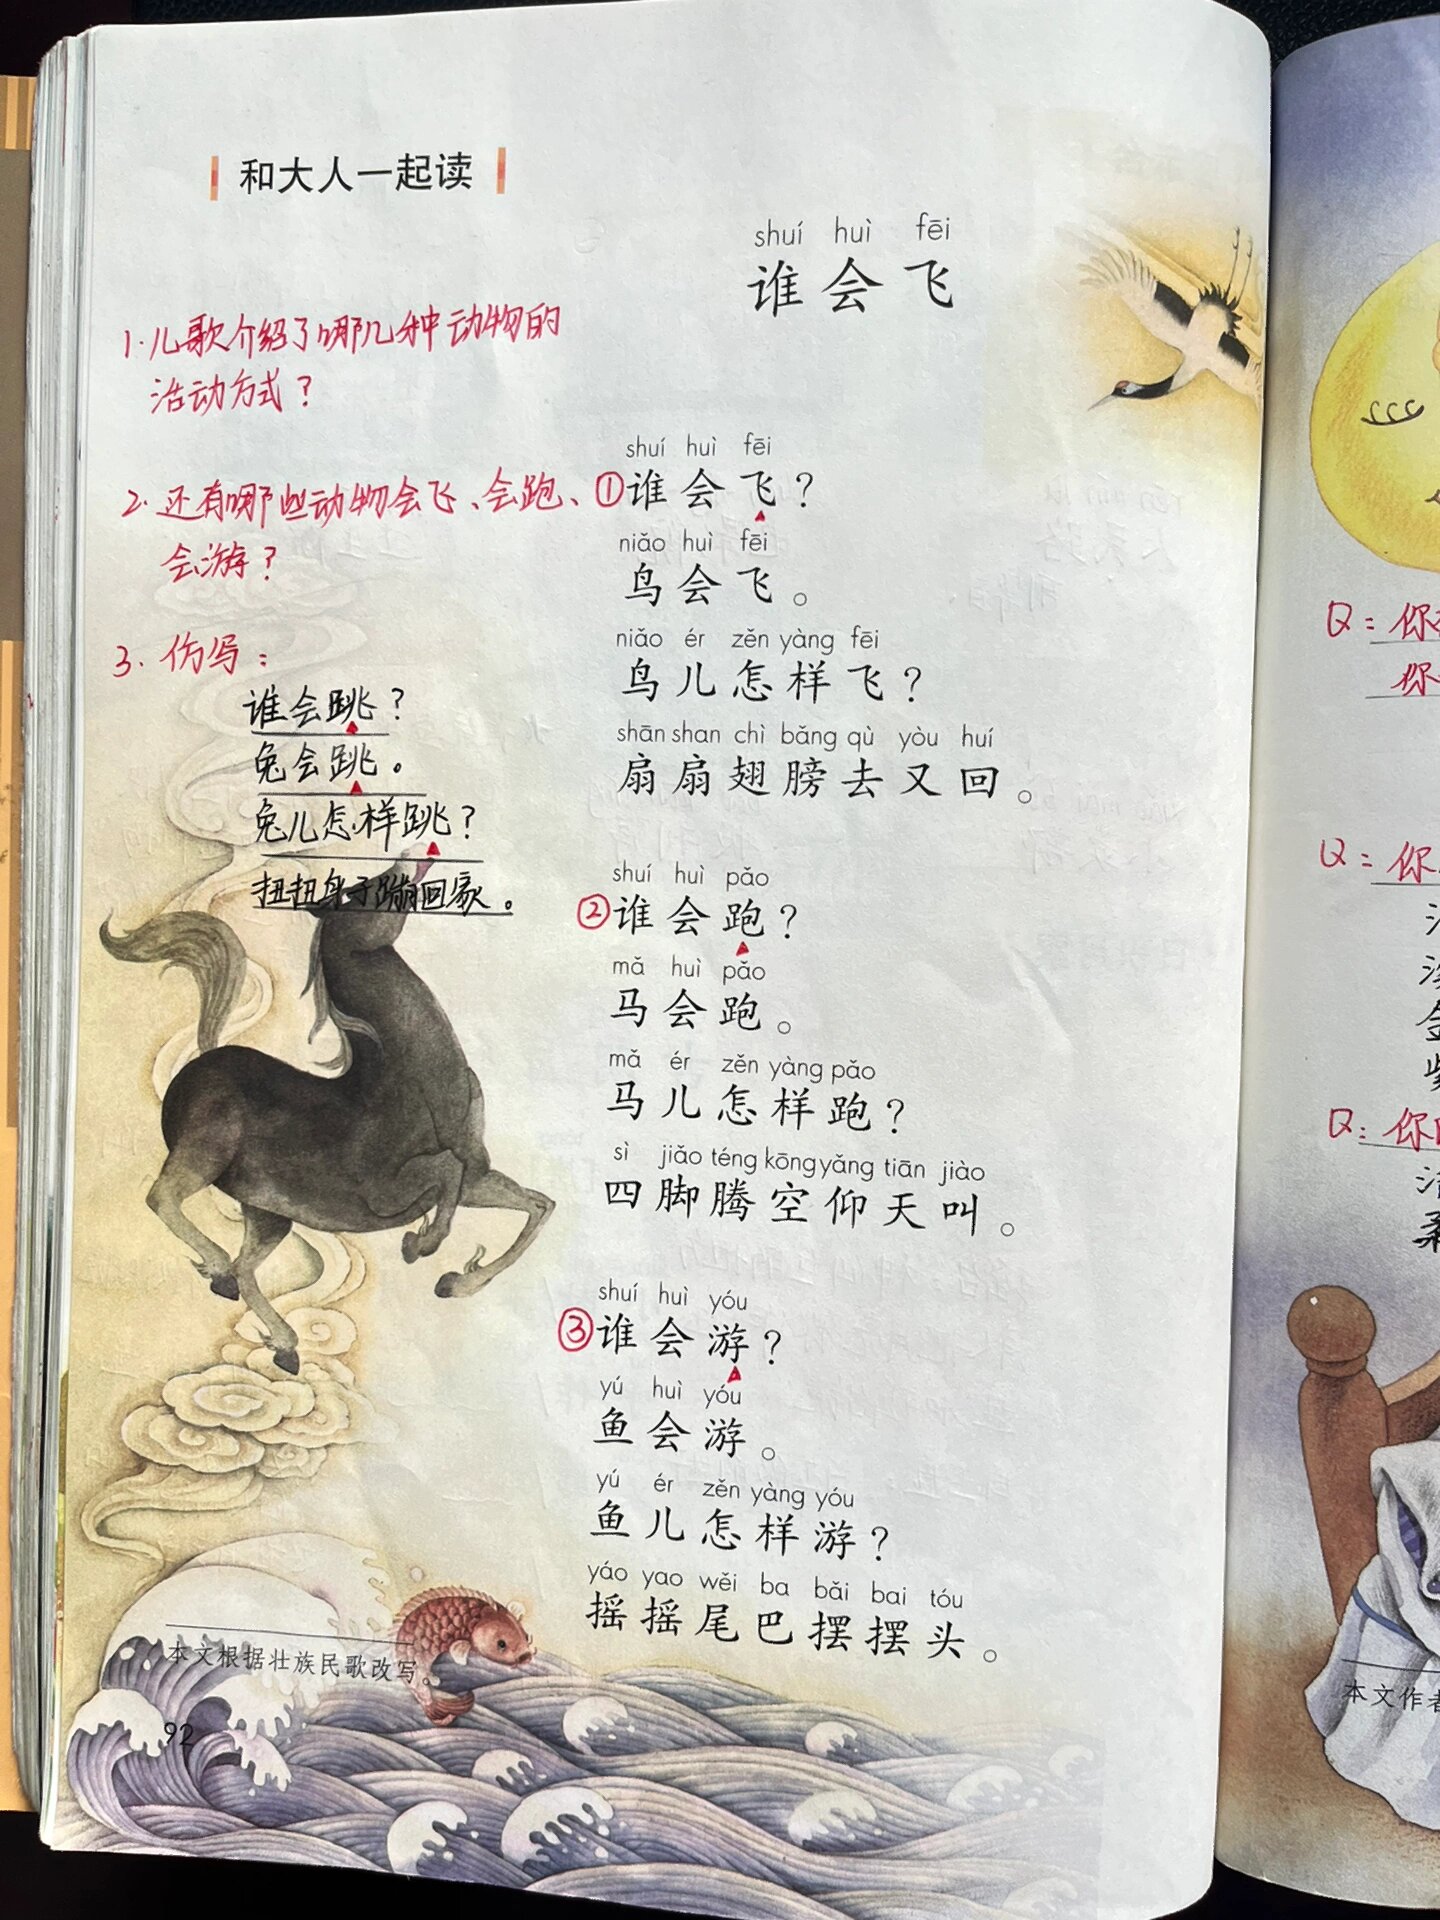 和大人一起读
shuí huì fēi
谁会飞
1. 儿歌介绍了哪几种动物的
活动方式？
2. 还有哪些动物会飞、会跑、
会游？
3. 仿写：
谁会跳？
兔会跳。
兔儿怎样跳？
扭扭身子蹦回家。
shuí huì fēi
①谁会飞？
niǎo huì fēi
鸟会飞。
niǎo ér zěn yàng fēi
鸟儿怎样飞？
shān shan chì bǎng qù yòu huí
扇扇翅膀去又回。
shuí huì pǎo
②谁会跑？
mǎ huì pǎo
马会跑。
mǎ ér zěn yàng pǎo
马儿怎样跑？
sì jiǎo téng kōng yǎng tiān jiào
四脚腾空仰天叫。
shuí huì yóu
③谁会游？
yú huì yóu
鱼会游。
yú ér zěn yàng yóu
鱼儿怎样游？
yáo yao wěi ba bǎi bai tóu
摇摇尾巴摆摆头。
本文根据壮族民歌改写。
92
Q：你
你
Q：你
Q：你
本文作者